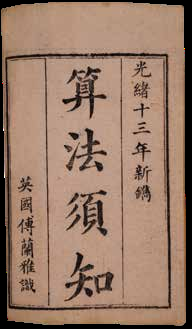 光緒十三年新鐫
算法須知
英國傅蘭雅識